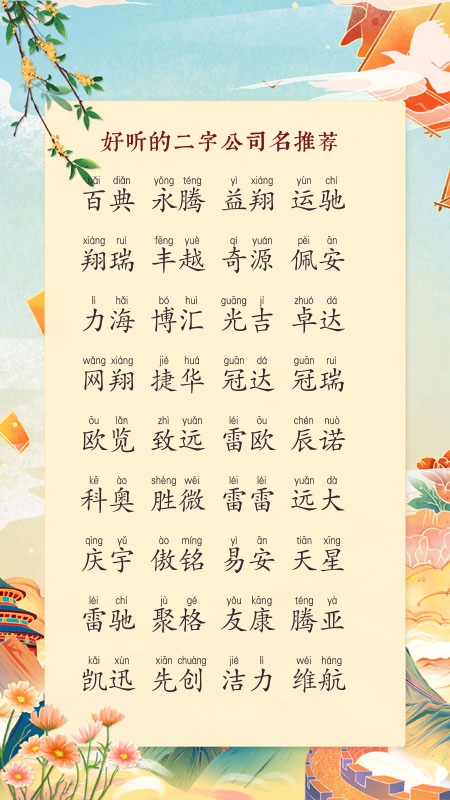 好听的二字公司名推荐
bǎi diǎn yǒng téng yì xiáng yùn chí
百典 永腾 益翔 运驰
xiáng ruì fēng yuè qí yuán pèi ān
翔瑞 丰越 奇源 佩安
lì hǎi bó huì guāng jí zhuó dá
力海 博汇 光吉 卓达
wǎng xiáng jié huá guān dá guān ruì
网翔 捷华 冠达 冠瑞
ōu lǎn zhì yuǎn léi ōu chén nuò
欧览 致远 雷欧 辰诺
kē ào shèng wēi léi léi yuǎn dà
科奥 胜微 雷雷 远大
qìng yǔ ào míng yì ān tiān xīng
庆宇 傲铭 易安 天星
léi chí jù gé yǒu kāng téng yà
雷驰 聚格 友康 腾亚
kǎi xùn xiān chuàng jié lì wéi háng
凯迅 先创 洁力 维航